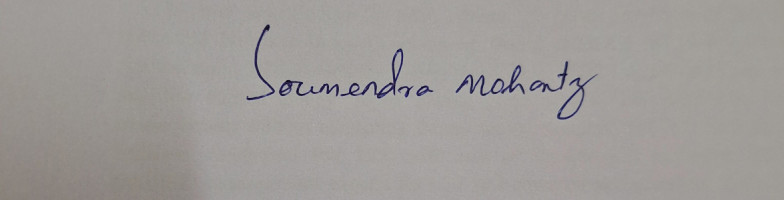 Soumendra Mohanty